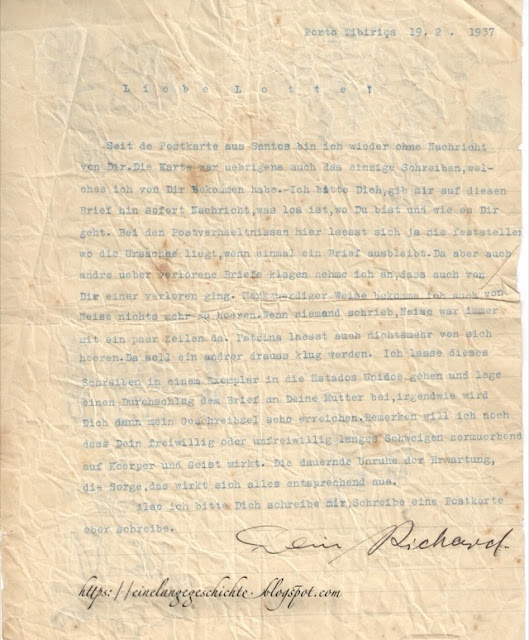 Porto Tibiriça 19. 2 . 1937
L i e b e L o t t e !
Seit de Postkarte aus Santos bin ich wieder ohne Nachricht
von Dir.Die Karte war uebrigens auch das einzige Schreiben,wel-
ches ich von Dir bekommen habe.-Ich bitte Dich,gib mir auf diesen
Brief hin sofort Nachricht,was los ist,wo Du bist und wie es Dir
geht. Bei den Postverhaeltnissen hier laesst sich ja nie feststellen
wo die Ursachen liegt,wenn einmal ein Brief ausbleibt.Da aber auch
andre ueber verlorene Briefe klagen nehme ich an,dass auch von
Dir einer verloren ging. Merkwuerdiger Weise bekomme ich auch von
Neise nichts mehr zu hoeren.Wenn niemand schrieb,Neise war immer
mit ein paar Zeilen da. Patzina laesst auch nichtsmehr von sich
hoeren.Da soll ein andrer drauss klug werden. Ich lasse dieses
Schreiben in einem Exemplar in die Estados Unidos gehen und lege
einen Durchschlag dem Brief an Deine Mutter bei,irgendwie wird
Dich dann mein Geschreibsel scho erreichen.Bemerken will ich noch
dass Dein freiwillig oder unfreiwillig langes Schweigen zermuerbend
auf Koerper und Geist wirkt. Die dauernde Unruhe der Erwartung,
die Sorge,das wirkt sich alles entsprechend aus.
Also ich bitte Dich schreibe mir,Schreibe eine Postkarte
aber schreibe.
Dein Richard.
https://einelangegeschichte.blogspot.com